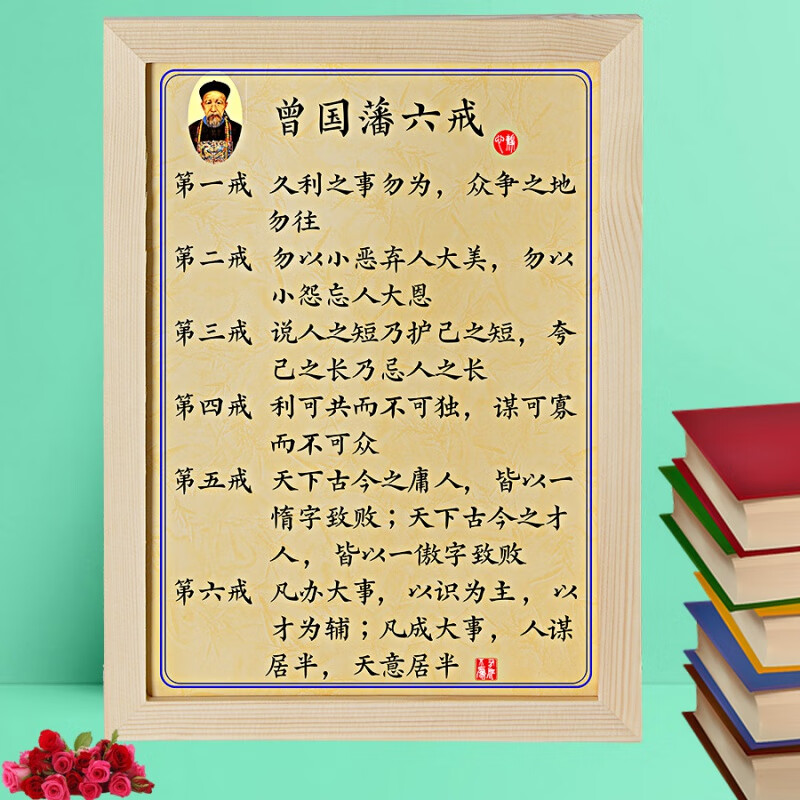 曾国藩六戒
第一戒 久利之事勿为，众争之地
勿往
第二戒 勿以小恶弃人大美，勿以
小怨忘人大恩
第三戒 说人之短乃护己之短，夸
己之长乃忌人之长
第四戒 利可共而不可独，谋可寡
而不可众
第五戒 天下古今之庸人，皆以一
惰字致败；天下古今之才
人，皆以一傲字致败
第六戒 凡办大事，以识为主，以
才为辅；凡成大事，人谋
居半，天意居半